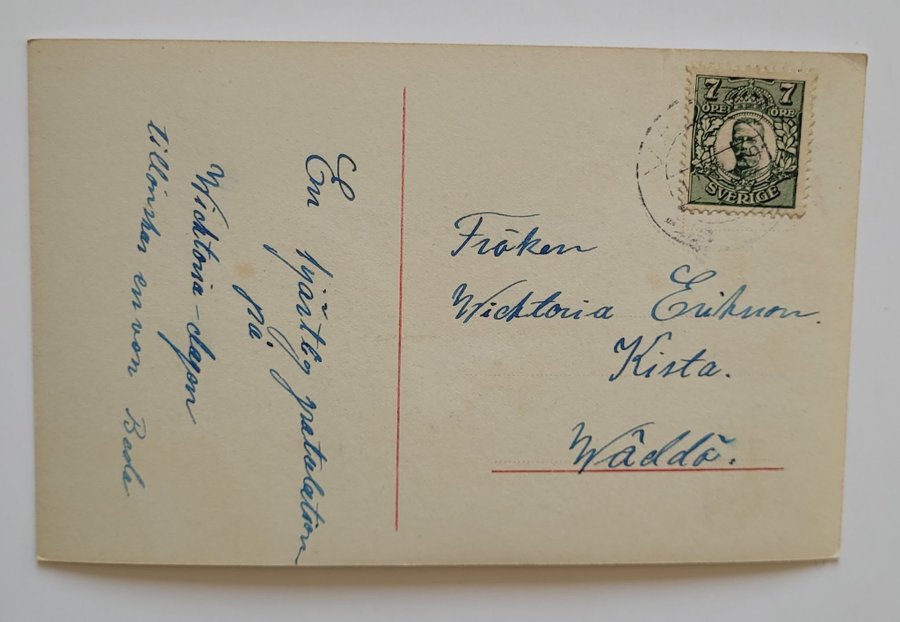 En hjärtlig gratulation
på
Wicktoria-dagen
tillönskas en von Bada
7 7
ÖRE ÖRE
SVERIGE
Fröken
Wicktoria Erikson.
Kista.
Wäddö.